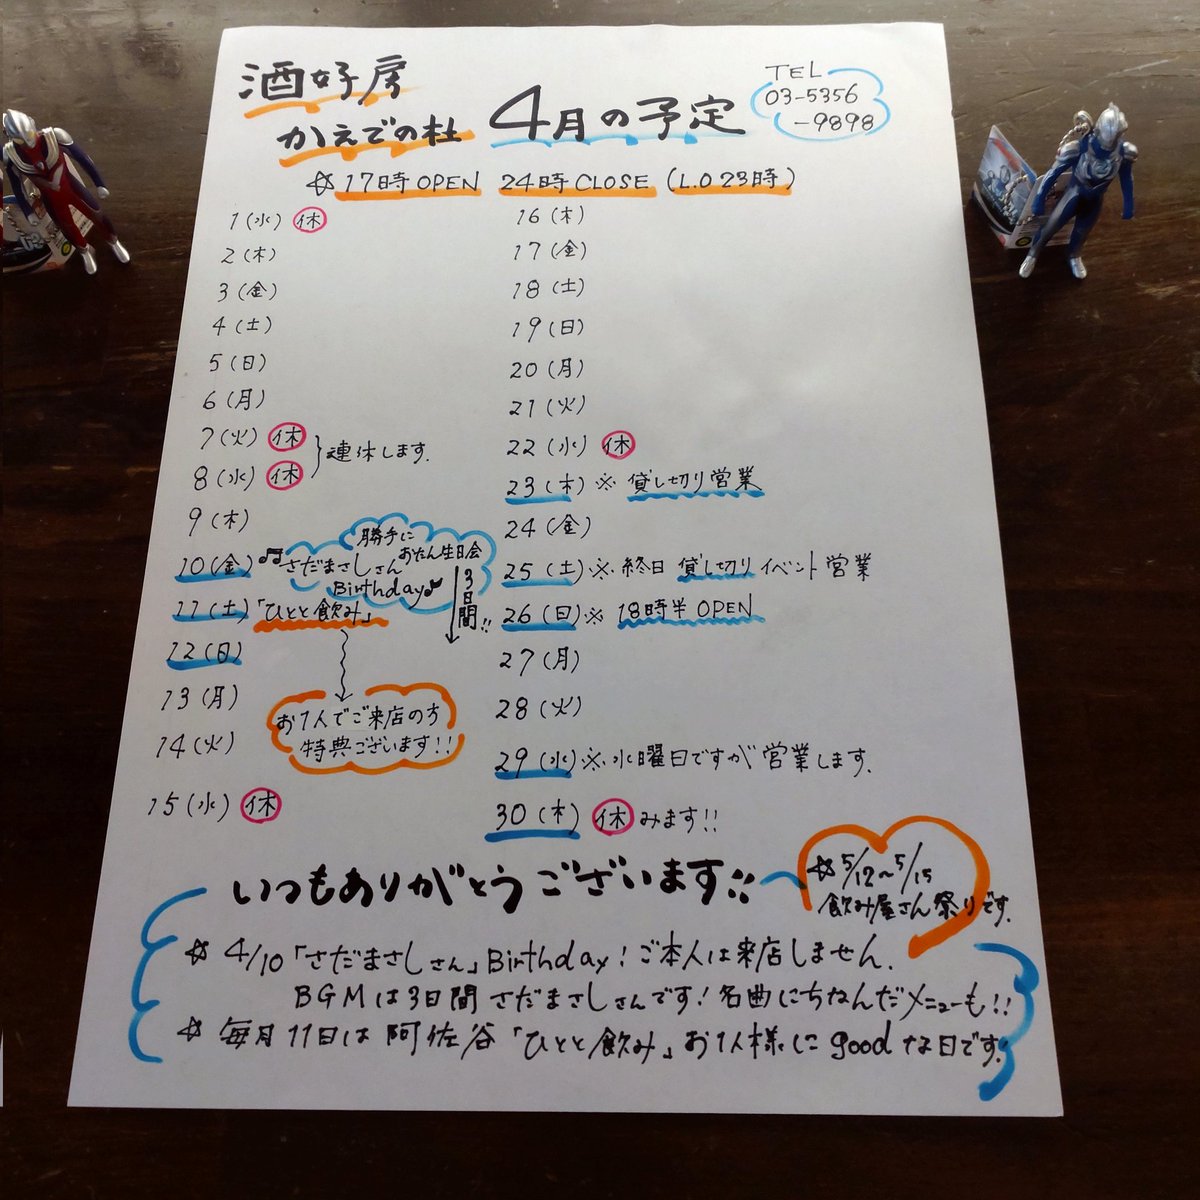 酒好房
かえでの杜 4月の予定
TEL
03-5356
-9898
☆17時OPEN 24時CLOSE (L.O 23時)
1(水) 休
2(木)
3(金)
4(土)
5(日)
6(月)
7(火) 休
8(水) 休
連休します.
9(木)
10(金) ♫さだまさしさん
Birthday♪
勝手に
おたん生日会
3日間!!
11(土)「ひとと飲み」
12(日)
13(月)
お1人でご来店の方
特典ございます!!
14(火)
15(水) 休
16(木)
17(金)
18(土)
19(日)
20(月)
21(火)
22(水) 休
23(木)※ 貸し切り営業
24(金)
25(土)※ 終日 貸し切りイベント営業
26(日)※ 18時半 OPEN
27(月)
28(火)
29(水)※水曜日ですが営業します.
30(木) 休みます!!
いつもありがとうございます!!
☆5/12~5/15
飲み屋さん祭りです.
☆ 4/10「さだまさしさん」Birthday!ご本人は来店しません.
BGMは3日間さだまさしさんです!名曲にちなんだメニューも!!
☆ 毎月11日は 阿佐谷「ひとと飲み」お1人様にgoodな日です.